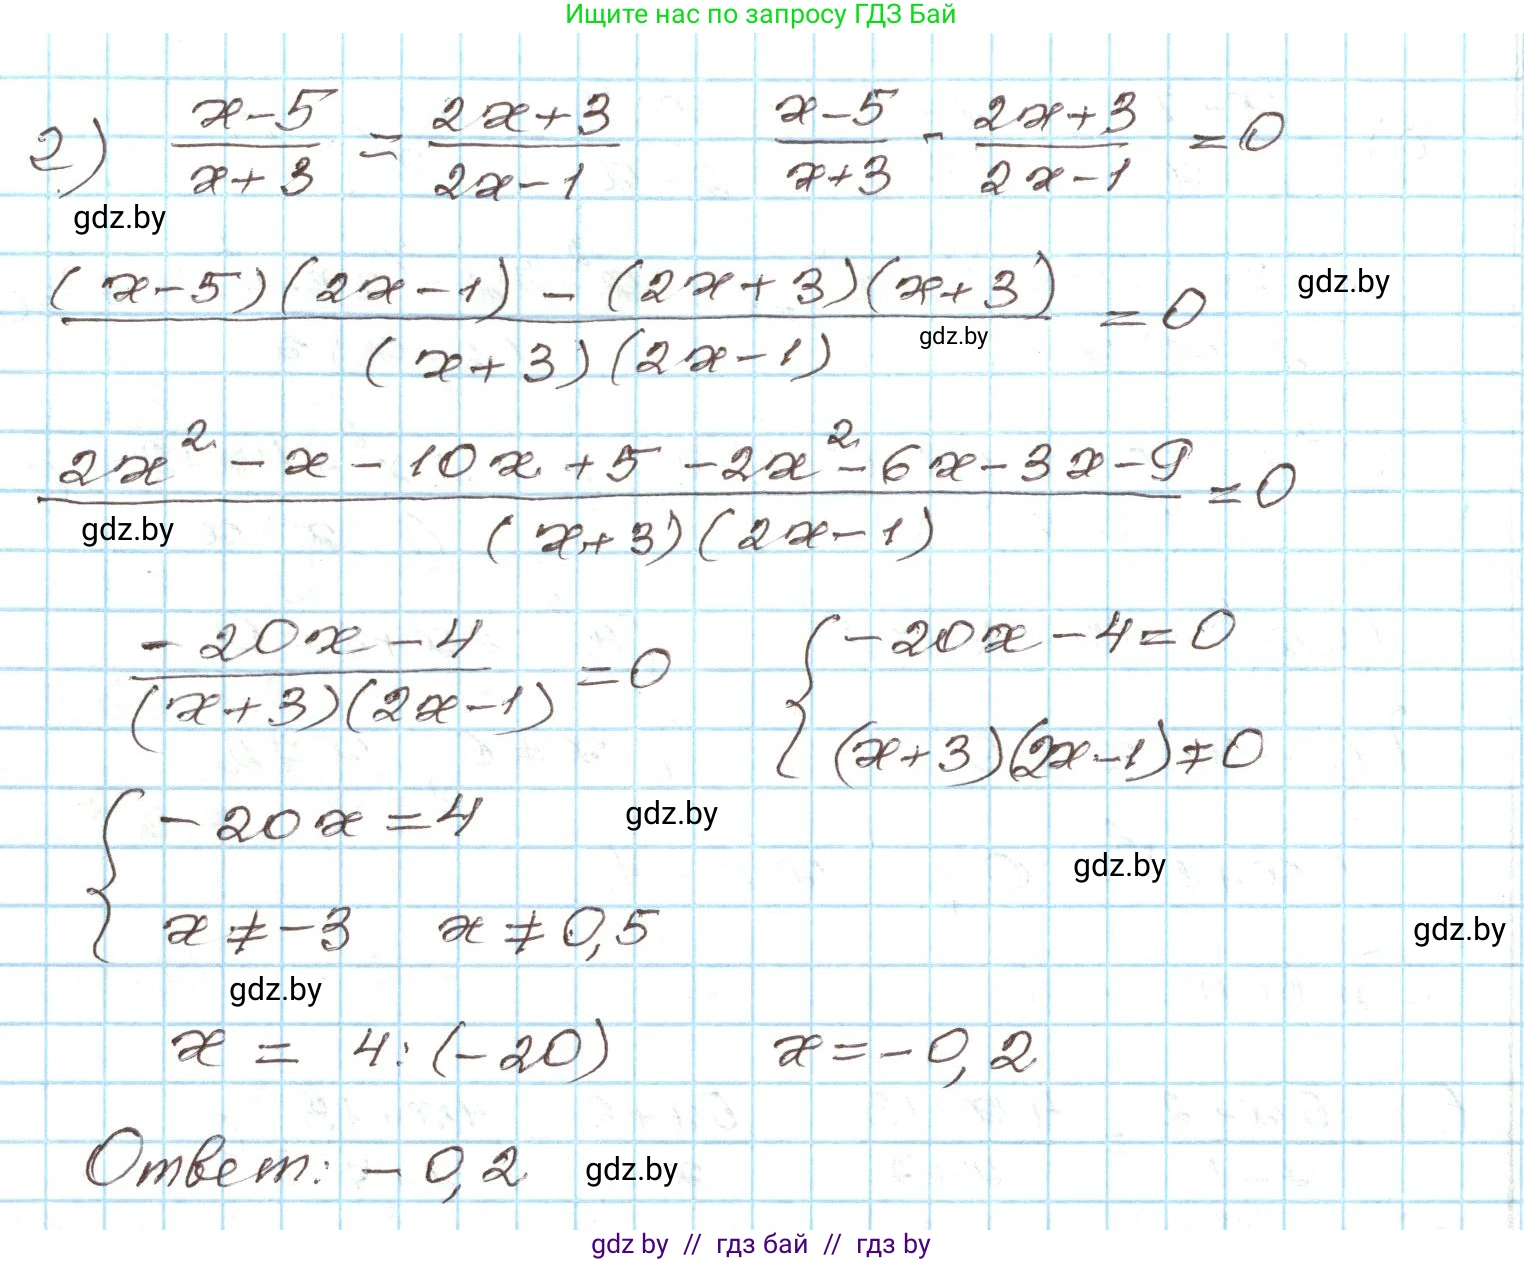 Ищите нас по запросу ГДЗ Бай
2) (x-5)/(x+3) = (2x+3)/(2x-1)   (x-5)/(x+3) - (2x+3)/(2x-1) = 0
gdz.by
((x-5)(2x-1) - (2x+3)(x+3))/((x+3)(2x-1)) = 0
gdz.by
gdz.by
(2x² - x - 10x + 5 - 2x² - 6x - 3x - 9)/((x+3)(2x-1)) = 0
gdz.by
(-20x - 4)/((x+3)(2x-1)) = 0   { -20x - 4 = 0
(x+3)(2x-1) ≠ 0
{ -20x = 4
gdz.by
gdz.by
x ≠ -3   x ≠ 0,5
gdz.by
gdz.by
x = 4 : (-20)   x = -0,2
Ответ: - 0,2
gdz.by
gdz by // гдз бай // гдз by